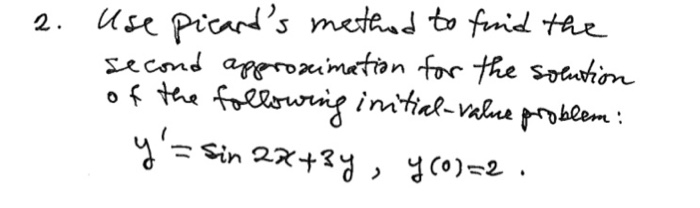 2. Use picard's method to find the
second approximation for the solution
of the following initial-value problem:
y' = sin 2x+3y, y(0)=2.